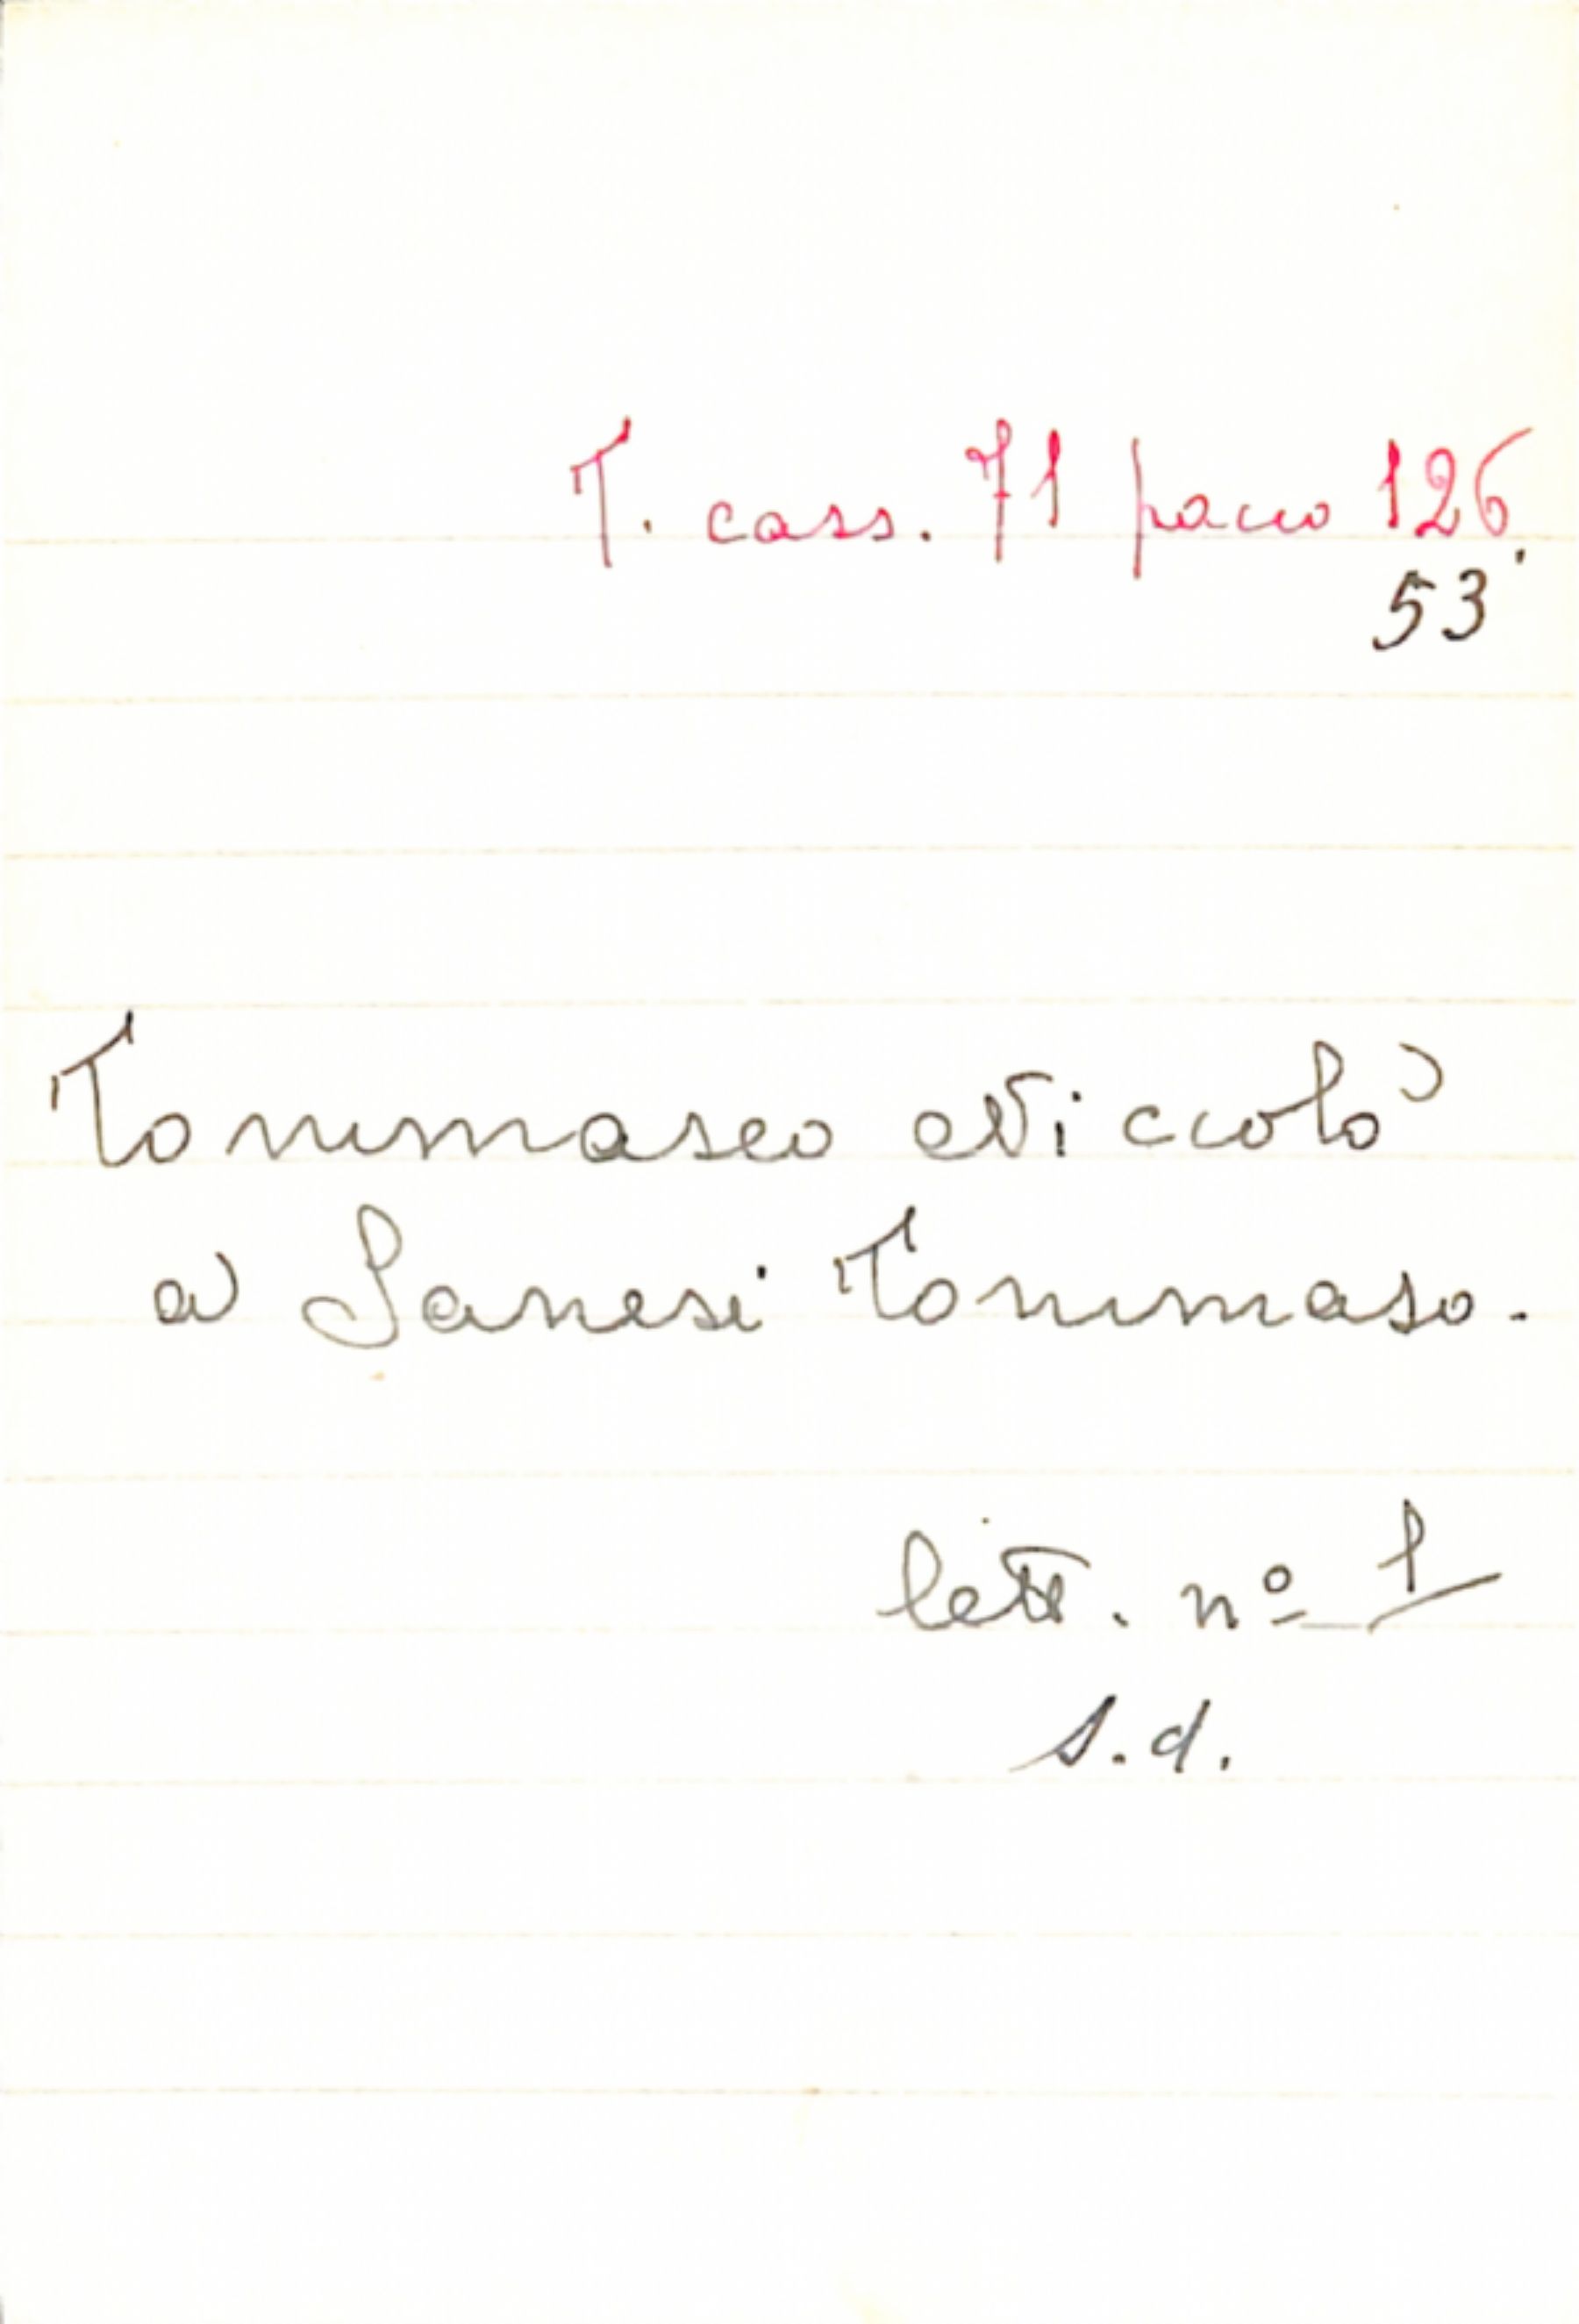 T. cass. 71 pacco 126.
53
Tommaseo Niccolò
a Sanesi Tommaso.
lett. nº 1
s.d.